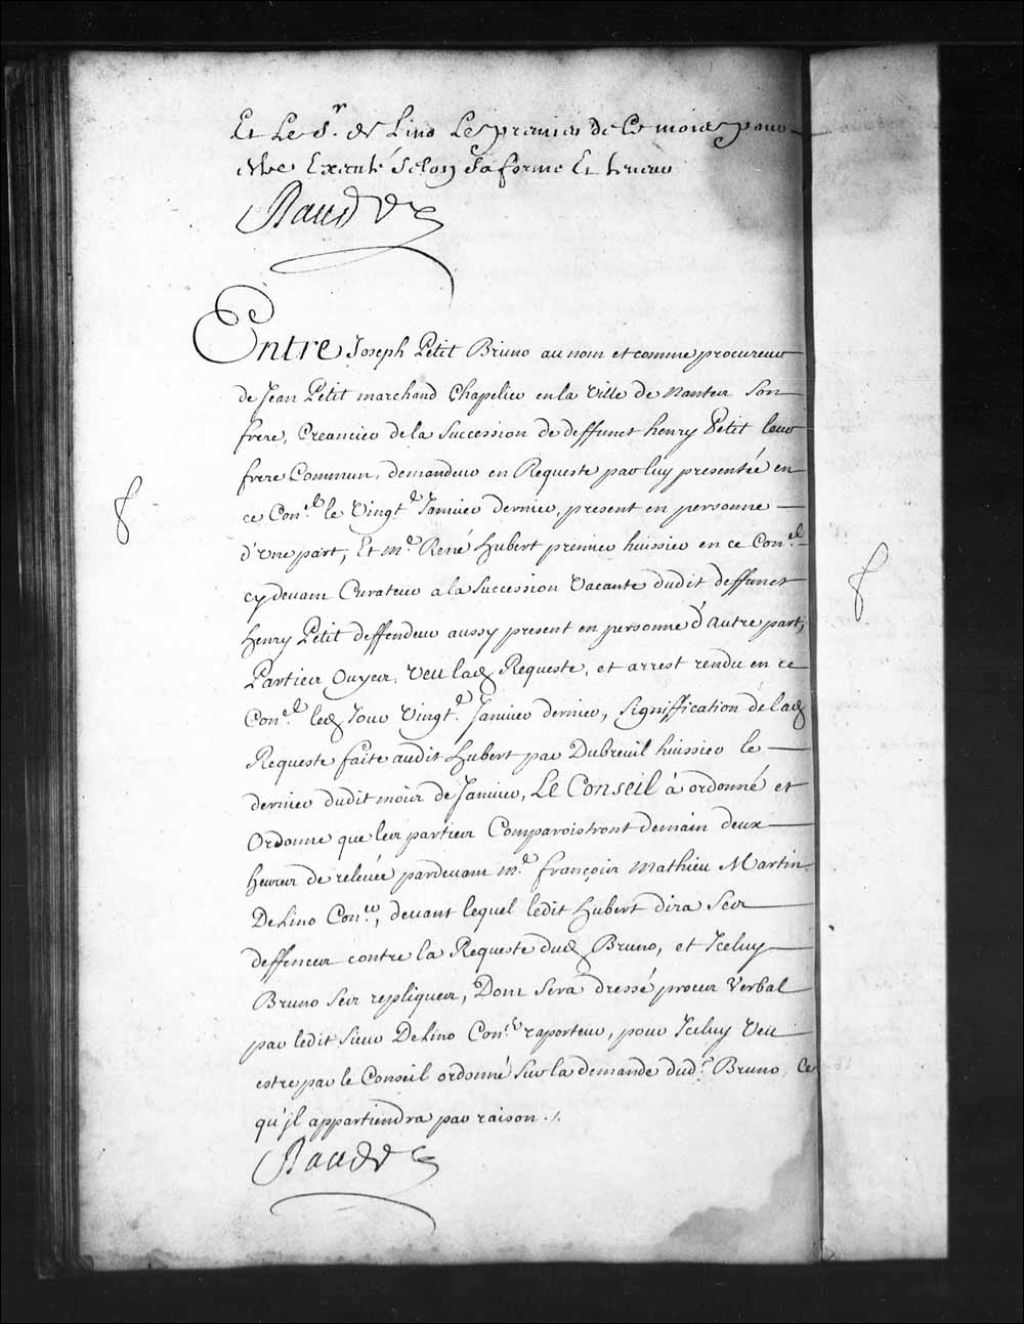 Et Le Sr. de Lino Le premier de Ce mois pour
estre Executé Selon Sa forme Et teneur
Raudot
Entre Joseph Petit Bruno au nom et comme procureur
de Jean Petit marchand Chapelier en la Ville de Nantes Son
frere, Creancier de la Succession de deffunct henry Petit leur
frere Commun, demandeur en Requeste par luy presentée en
ce Conel. le Vingte. Janvier dernier, present en personne
d'Une part, Et me. René Hubert premier huissier en ce Conel.
cydevant Curateur a la Succession Vacante dudit deffunct
Henry Petit deffendeur aussy present en personne d'autre part,
Parties Ouyes, Veu lad Requeste, et arrest rendu en ce
Conel. led Jour Vingte. Janvier dernier, Signiffication de lad
Requeste faite audit Hubert par Dubreuil huissier le
dernier dudit mois de Janvier, Le Conseil à ordonné et
Ordonne que les parties Comparoistront demain deux
heures de relevée pardevant me. françois Mathieu Martin
Delino Coner, devant lequel ledit Hubert dira Ses
deffences contre la Requeste dud Bruno, et Iceluy
Bruno Ses repliques, Dont Sera dressé proces Verbal
par ledit Sieur Delino Coner raporteur, pour Iceluy Veu
estre par le Conseil ordonné Sur la demande dudt. Bruno Ce
qu'jl appartiendra par raison ./.
Raudot